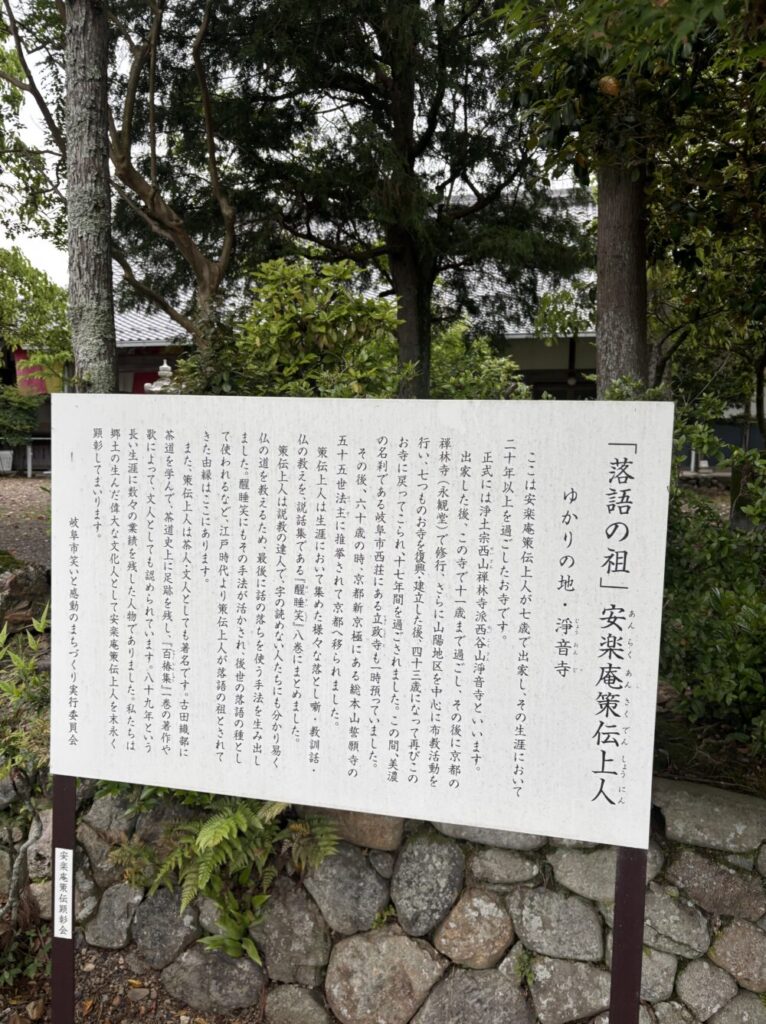 「落語の祖」安楽庵策伝上人
あんらくあんさくでんしょうにん
ゆかりの地・淨音寺
じょうおんじ
ここは安楽庵策伝上人が七歳で出家し、その生涯において
二十年以上を過ごしたお寺です。
正式には浄土宗西山禅林寺派西谷山淨音寺といいます。
出家した後、この寺で十一歳まで過ごし、その後に京都の
禅林寺（永観堂）で修行、さらに山陽地区を中心に布教活動を
行い、七つものお寺を復興・建立した後、四十三歳になって再びこの
お寺に戻ってこられ、十七年間を過ごされました。この間、美濃
の名刹である岐阜市西荘にある立政寺も一時預っていました。
その後、六十歳の時、京都新京極にある総本山誓願寺の
五十五世法主に推挙されて京都へ移られました。
策伝上人は生涯において集めた様々な落とし噺・教訓話・
仏の教えを、説話集である『醒睡笑』八巻にまとめました。
策伝上人は説教の達人で、字の読めない人たちにも分かり易く
仏の道を教えるため、最後に話の落ちを使う手法を生み出し
ました。醒睡笑にもその手法が活かされ、後世の落語の種とし
て使われるなど、江戸時代より策伝上人が落語の祖とされて
きた由縁はここにあります。
また、策伝上人は茶人・文人としても著名です。古田織部に
茶道を学んで、茶道史上に足跡を残し、『百椿集』一巻の著作や
歌によって、文人としても認められています。八十九年という
長い生涯に数々の業績を残した人物でありました。私たちは
郷土の生んだ偉大な文化人として安楽庵策伝上人を末永く
顕彰してまいります。
岐阜市笑いと感動のまちづくり実行委員会
安楽庵策伝顕彰会